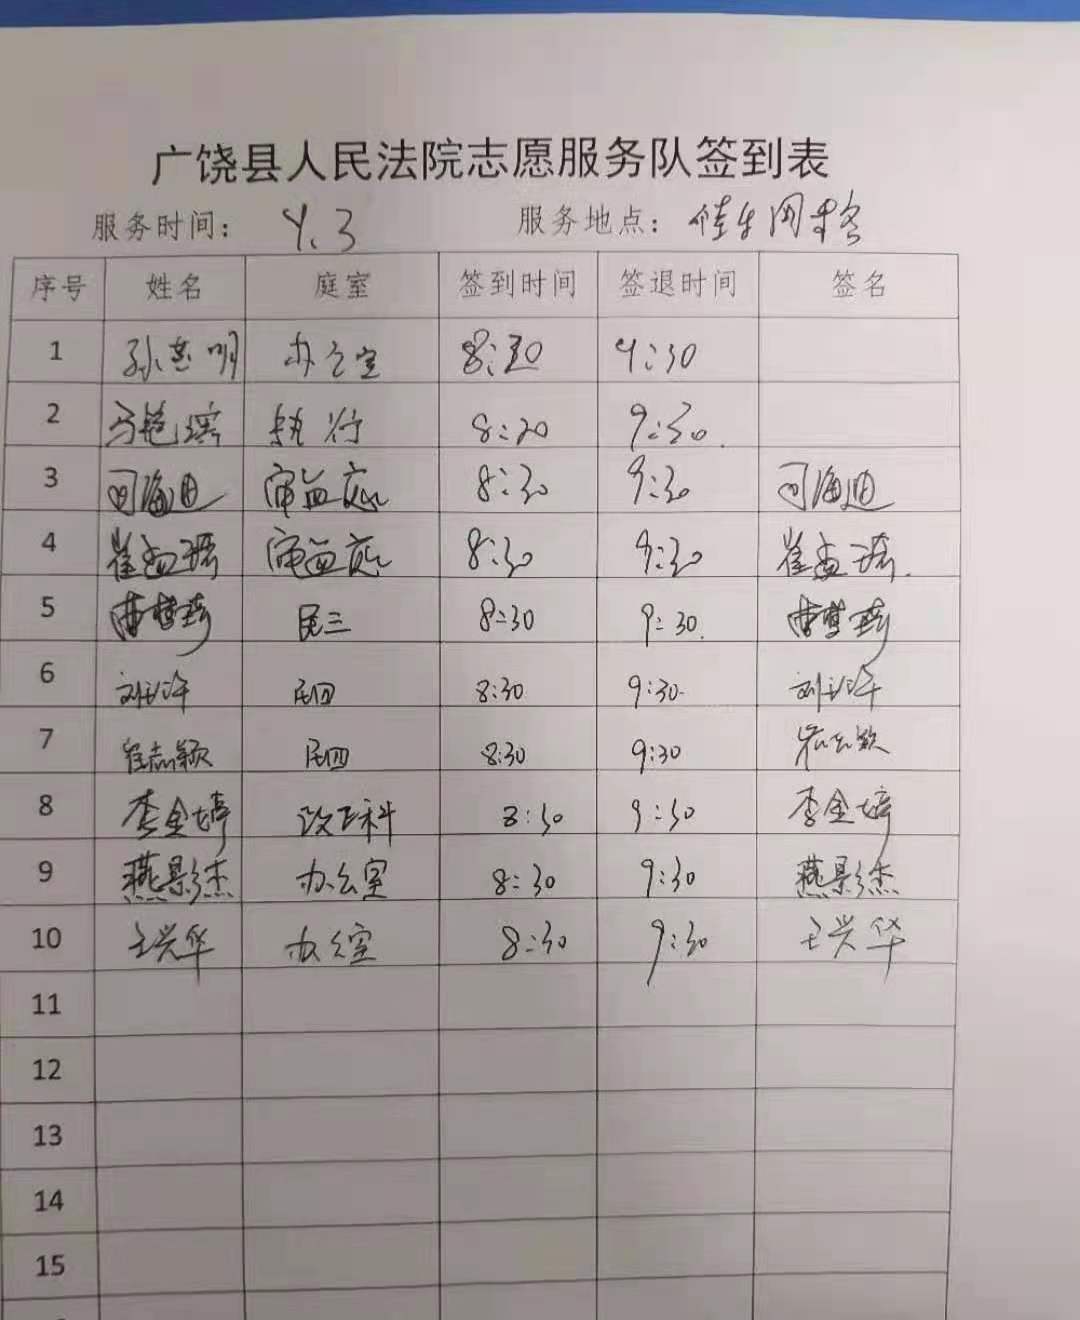 广饶县人民法院志愿服务队签到表
服务时间： 4.3 服务地点： 佳乐网格
序号 姓名 庭室 签到时间 签退时间 签名
1 孙 明 办公室 8:30 9:30
2 马艳 执行 8:30 9:30.
3 司海迪 审监庭 8:30 9:30 司海迪
4 崔孟瑶 审监庭 8:30 9:30 崔孟瑶.
5 民三 8:30 9:30.
6 刘 民四 8:30 9:30. 刘
7 崔志颖 民四 8:30 9:30 崔志颖
8 李金婷 政工科 8:30 9:30 李金婷
9 燕影杰 办公室 8:30 9:30 燕影杰
10 王兴华 办公室 8:30 9:30 王兴华
11
12
13
14
15